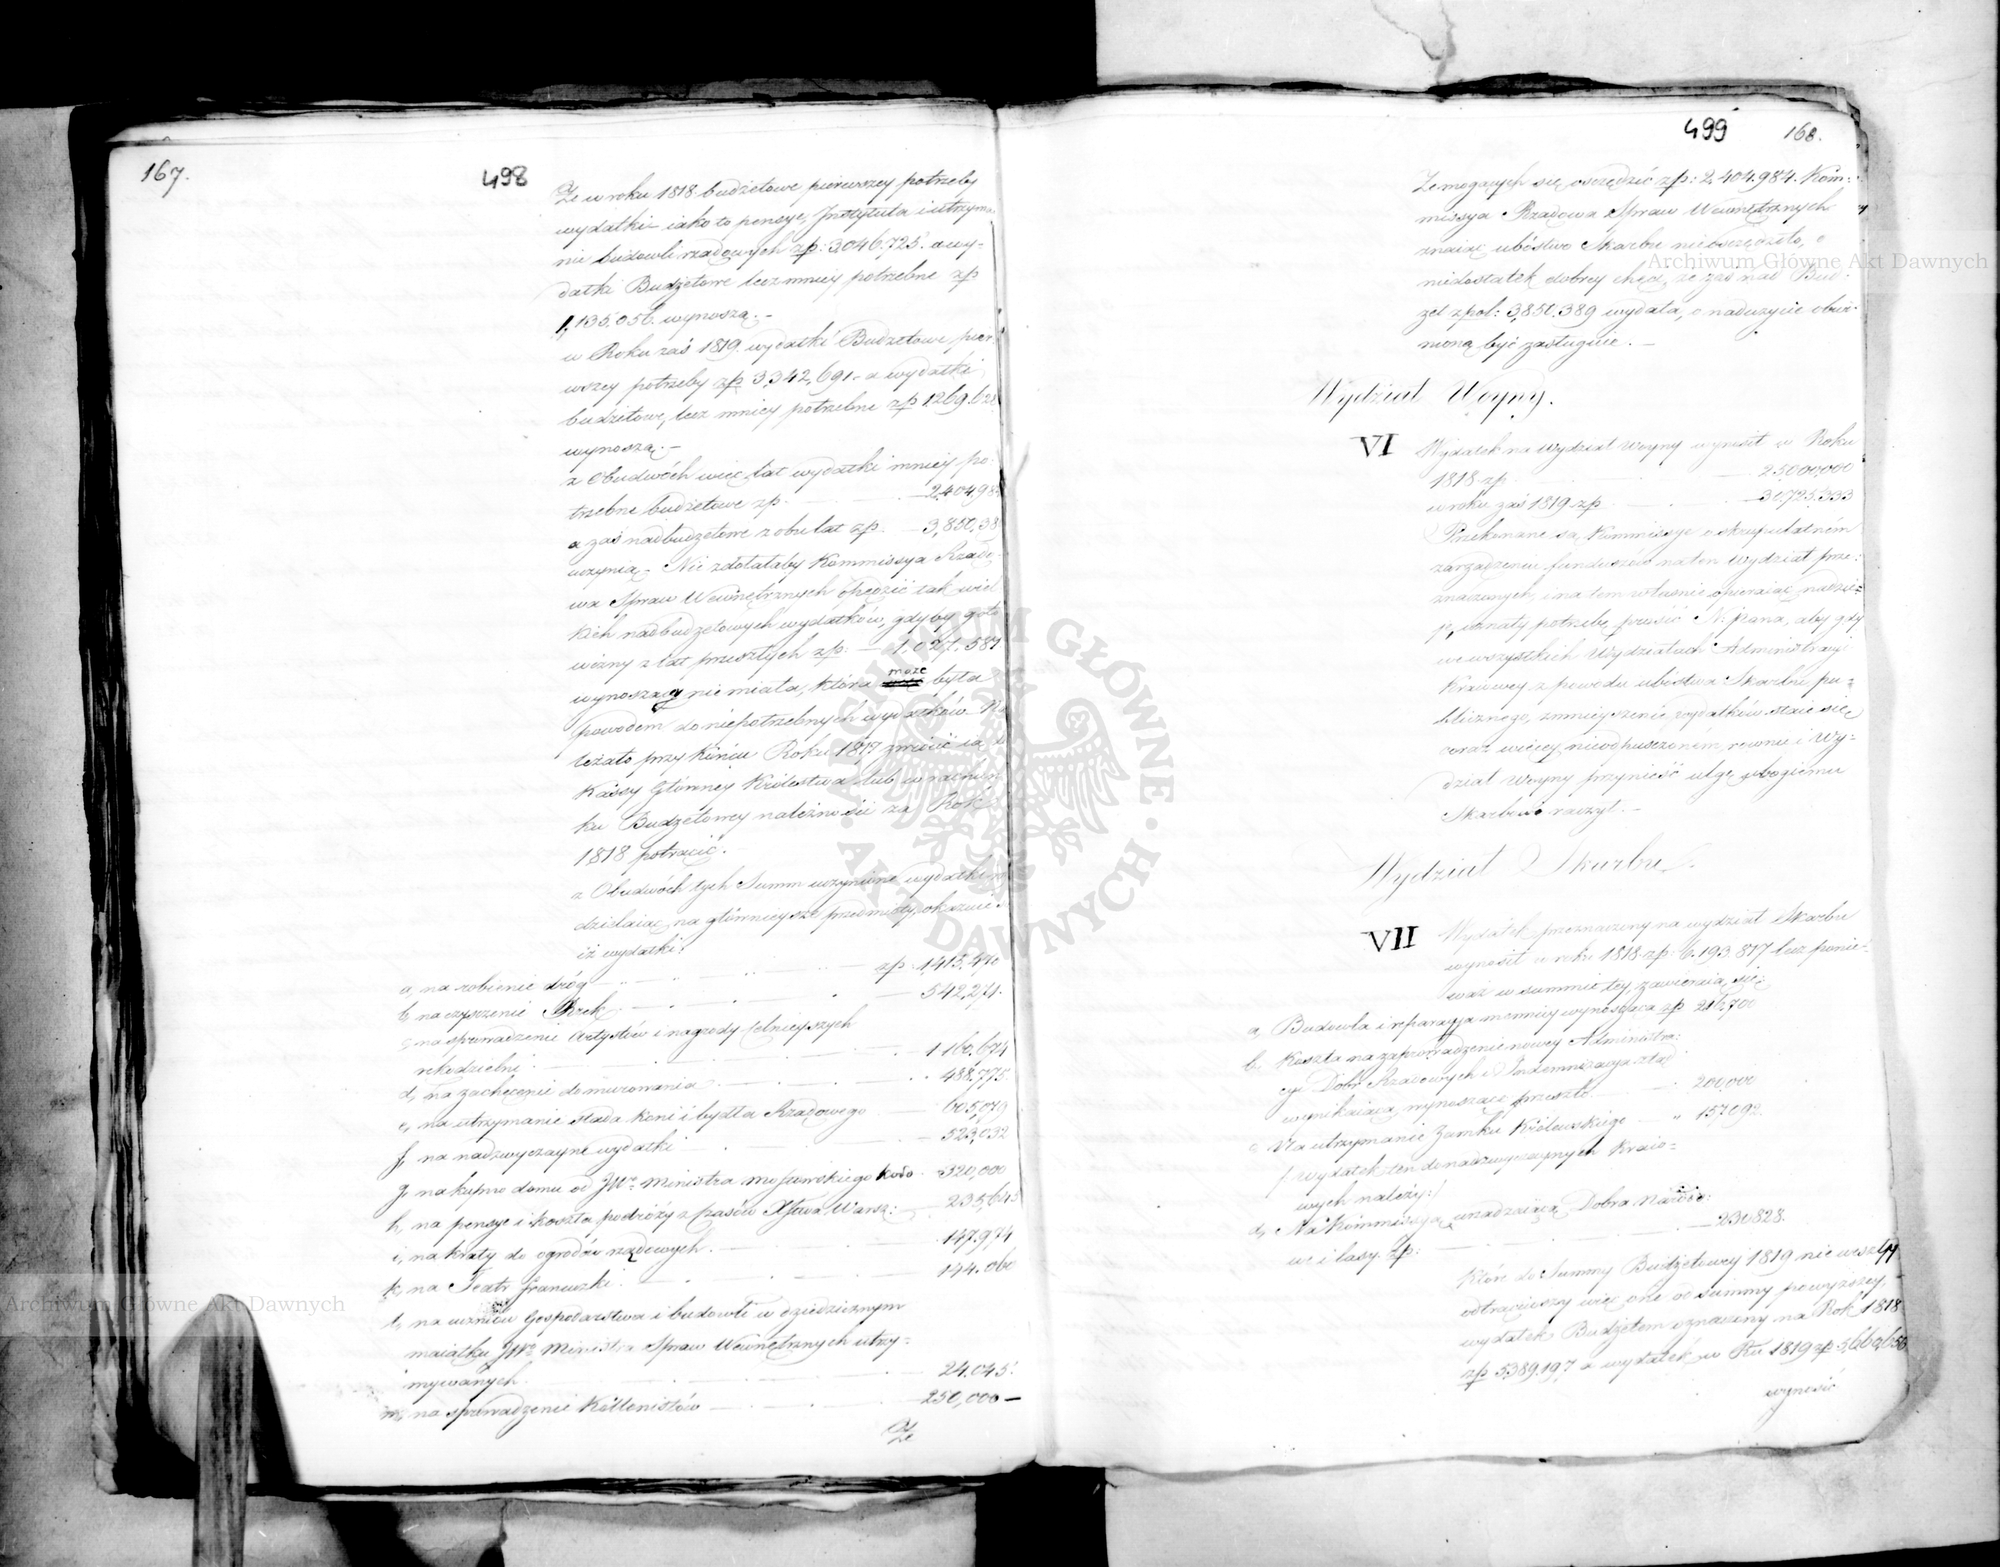 167.
498
Że w roku 1818. budżetowe pierwszey potrzeby
wydatki iako to pensye, Instytuta i utrzyma
nie budowli rządowych zp: 3046,725. a wy-
datki Budżetowe lecz mniey potrzebne zp
1,135,056. wynoszą. -
w Roku zaś 1819. wydatki Budżetowe pier
wszey potrzeby zp 3,342,691.- a wydatki
budżetowe, lecz mniey potrzebne zp 1,269,628
wynoszą. -
z Obudwóch więc lat wydatki mniey po-
trzebne budżetowe zp. 2,404,984
a zaś nadbudżetowe z obu lat zp. 3,850,38
czynią - Nie zdołałaby Kommissya Rządo
wa Spraw Wewnętrznych opędzić tak wiel
kich nadbudżetowych wydatków, gdyby goto
wizny z lat przeszłych zp: 1,027,587
wynoszący nie miała, która może była
powodem do niepotrzebnych wydatków Na
leżało przy końcu Roku 1817 zwrócić ią do
Kassy Główney Królestwa lub w rachun
ku Budżetowey należności za Rok
1818 potrącić. -
z Obudwóch tych Summ uczynione wydatki
dzielaiąc na główniejsze przedmioty, okazuie
iż wydatki:
a, na robienie dróg zp. 1415,470
b, na czyszczenie Rzek 542,274.
c, na sprowadzenie Artystów i nagrody celnieyszych
rękodzielni. 1160,674
d, na zachęcenie do murowania 488,775.
e, na utrzymanie stada koni i bydła Rządowego 605,079
f, na nadzwyczayne wydatki 523,032
g, na kupno domu od JWo Ministra Mostowskiego koło 320,000
h, na pensye i koszta podróży z czasów Xstwa Warsz: 235,645
i, na kraty do ogrodów rządowych. 147.974
k, na Teatr francuzki. 144.060
l, na uczniów Gospodarstwa i budowli w dziedzicznym
maiątku JWo Ministra Spraw Wewnętrznych utrzy-
mywanych. 24.045.
m, na sprowadzenie Kollonistów 250,000 -
Że
499
168.
Że mogących się oszczędzić zp: 2,404.984. Kom:
missya Rządowa Spraw Wewnętrznych
znaiąc ubóstwo Skarbu nieoszczędziła, o
niedostatek dobrey chęci, że zaś nad Bud:
żet zpol: 3,850,389 wydała, o nadużycie obwi-
nioną być zasługuie. -
Wydział Woyny.
VI
Wydatek na Wydział Woyny wynosił w Roku
1818 zp. 25,000,000
w roku zaś 1819 zp. 30,725,333
Przekonane są Kommissye o skrupulatném
zarządzeniu funduszów na ten Wydział prze:
znaczonych, i na tem właśnie opieraiąc nadzie-
ię, uznały potrzebę prosić N. Pana, aby gdy
we wszystkich Wydziałach Administracyi
Kraiowey z powodu ubóstwa Skarbu pu-
blicznego, zmnieyszenie wydatków staie się
coraz więcey nieodpuszczoném, równie i Wy-
dział Woyny przynieść ulgę ubogiemu
Skarbowi raczył. -
Wydział Skarbu.
VII
Wydatek przeznaczony na wydział Skarbu
wynosił w roku 1818 zp: 6.193.817 lecz ponie-
waż w summie tey zawieraią się:
a, Budowla i reparacyja mennicy wynosząca zp 216,700
b, Koszta na zaprowadzenie nowey Administra:
cyi Dóbr Rządowych i Indemnizacyja ztąd
wynikaiąca, wynosząc przeszło 200,000
c, Na utrzymanie Zamku Królewskiego " 157.092
/: wydatek ten do nadzwyczaynych Kraio-
wych należy :/
d, Na Kommissyą urządzaiącą Dobra Narodo:
we i lasy. zp: 230828.
które do Summy Budżetowey 1819 nie weszły
odtrąciwszy więc one od summy powyższey, -
wydatek Budżetem oznaczony na Rok 1818
zp 5389.197 a wydatek w Ru 1819 zp 5,669,650
wynosić